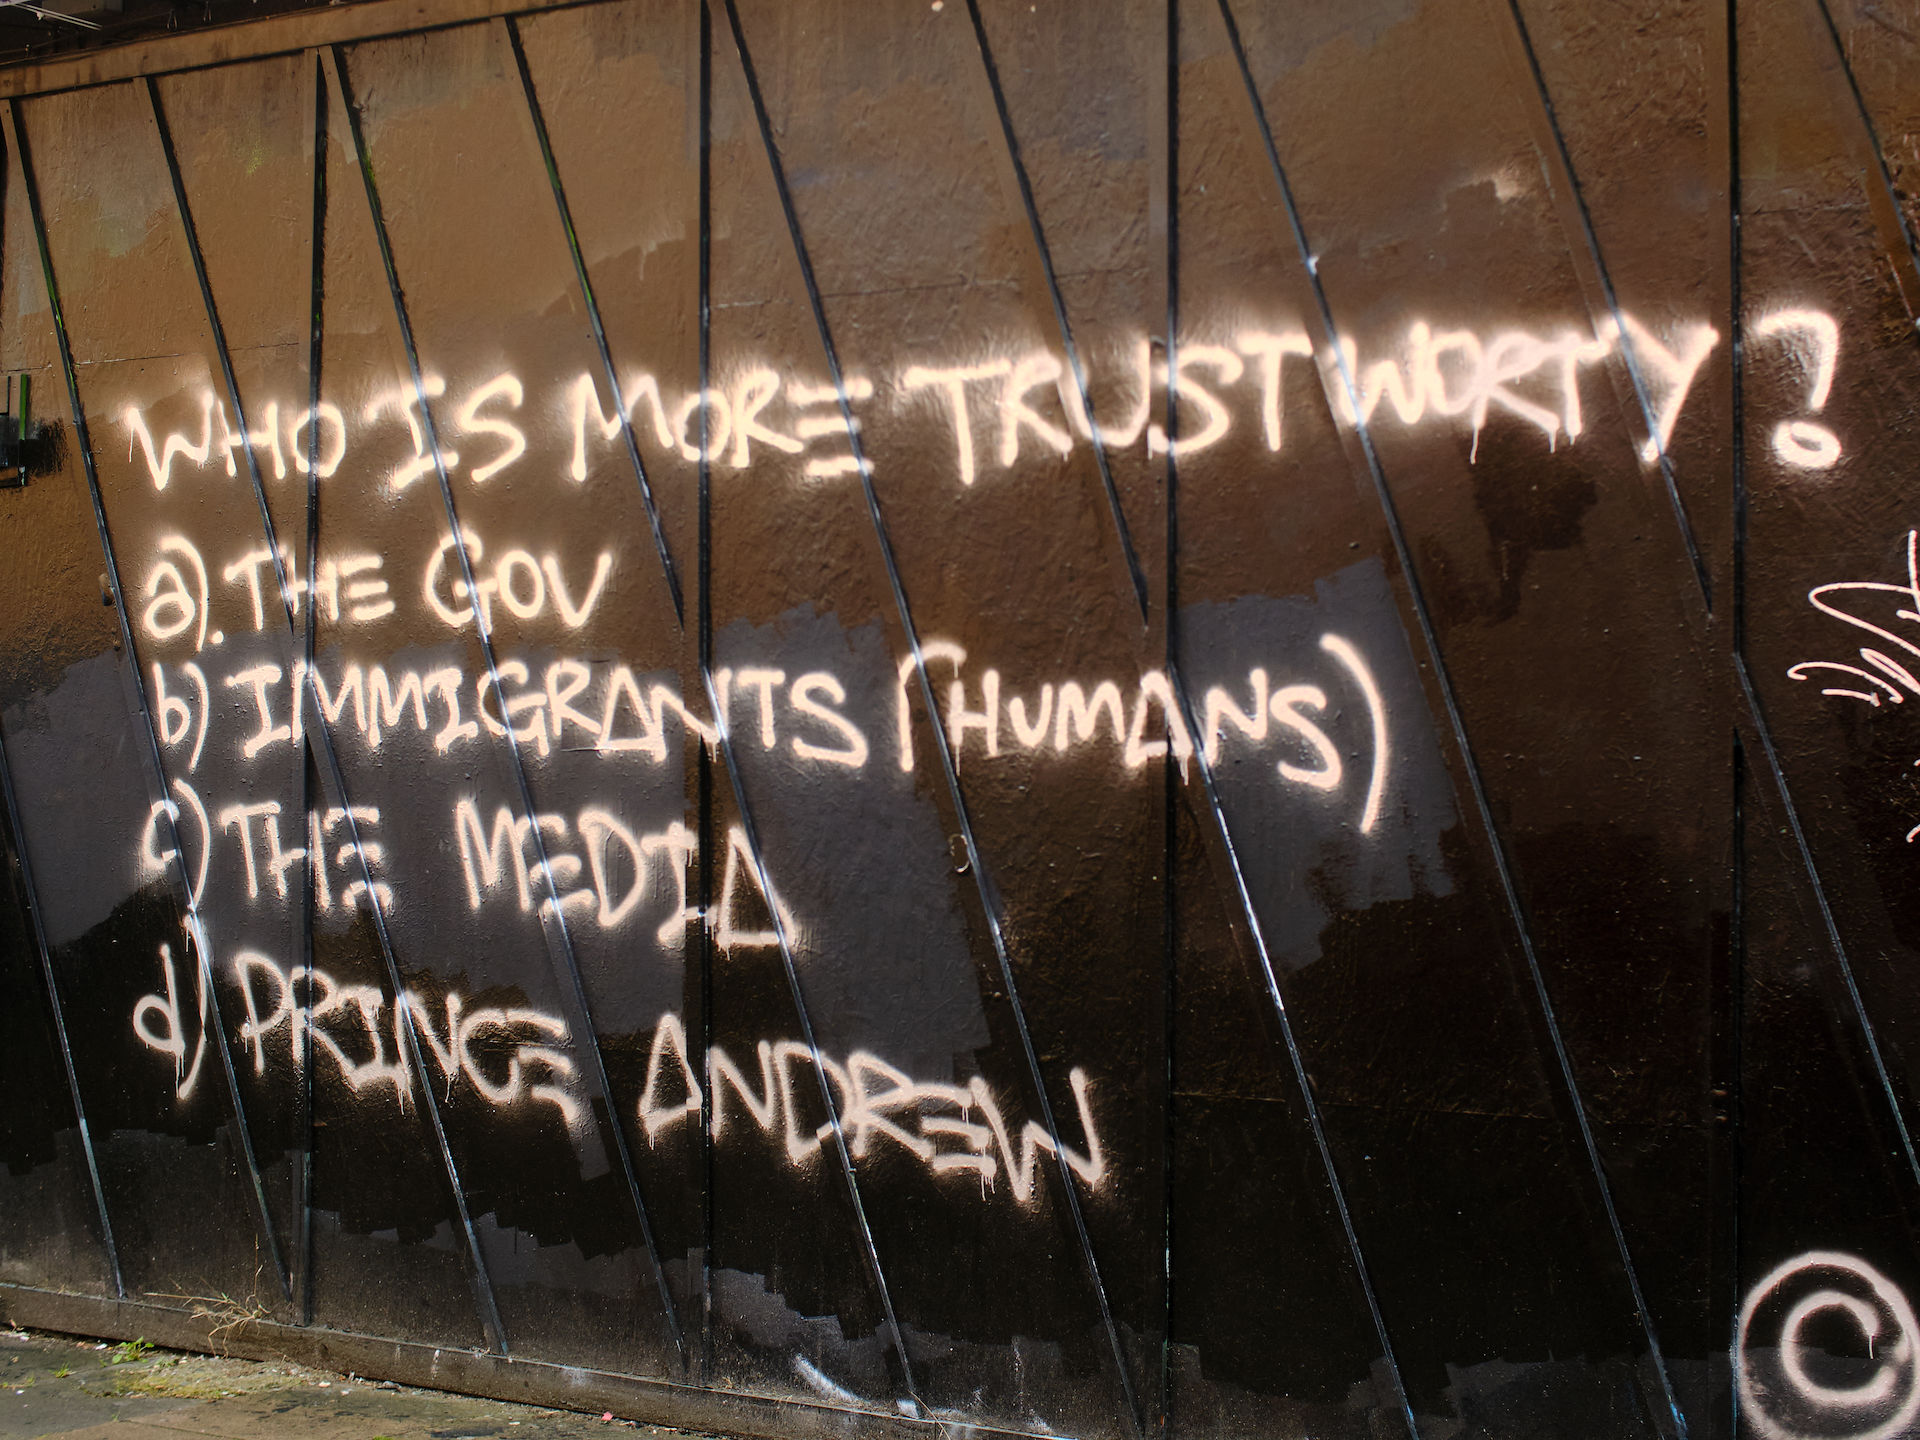 WHO IS MORE TRUSTWORTY?
a). THE GOV
b) IMMIGRANTS (HUMANS)
c) THE MEDIA
d) PRINCE ANDREW
©